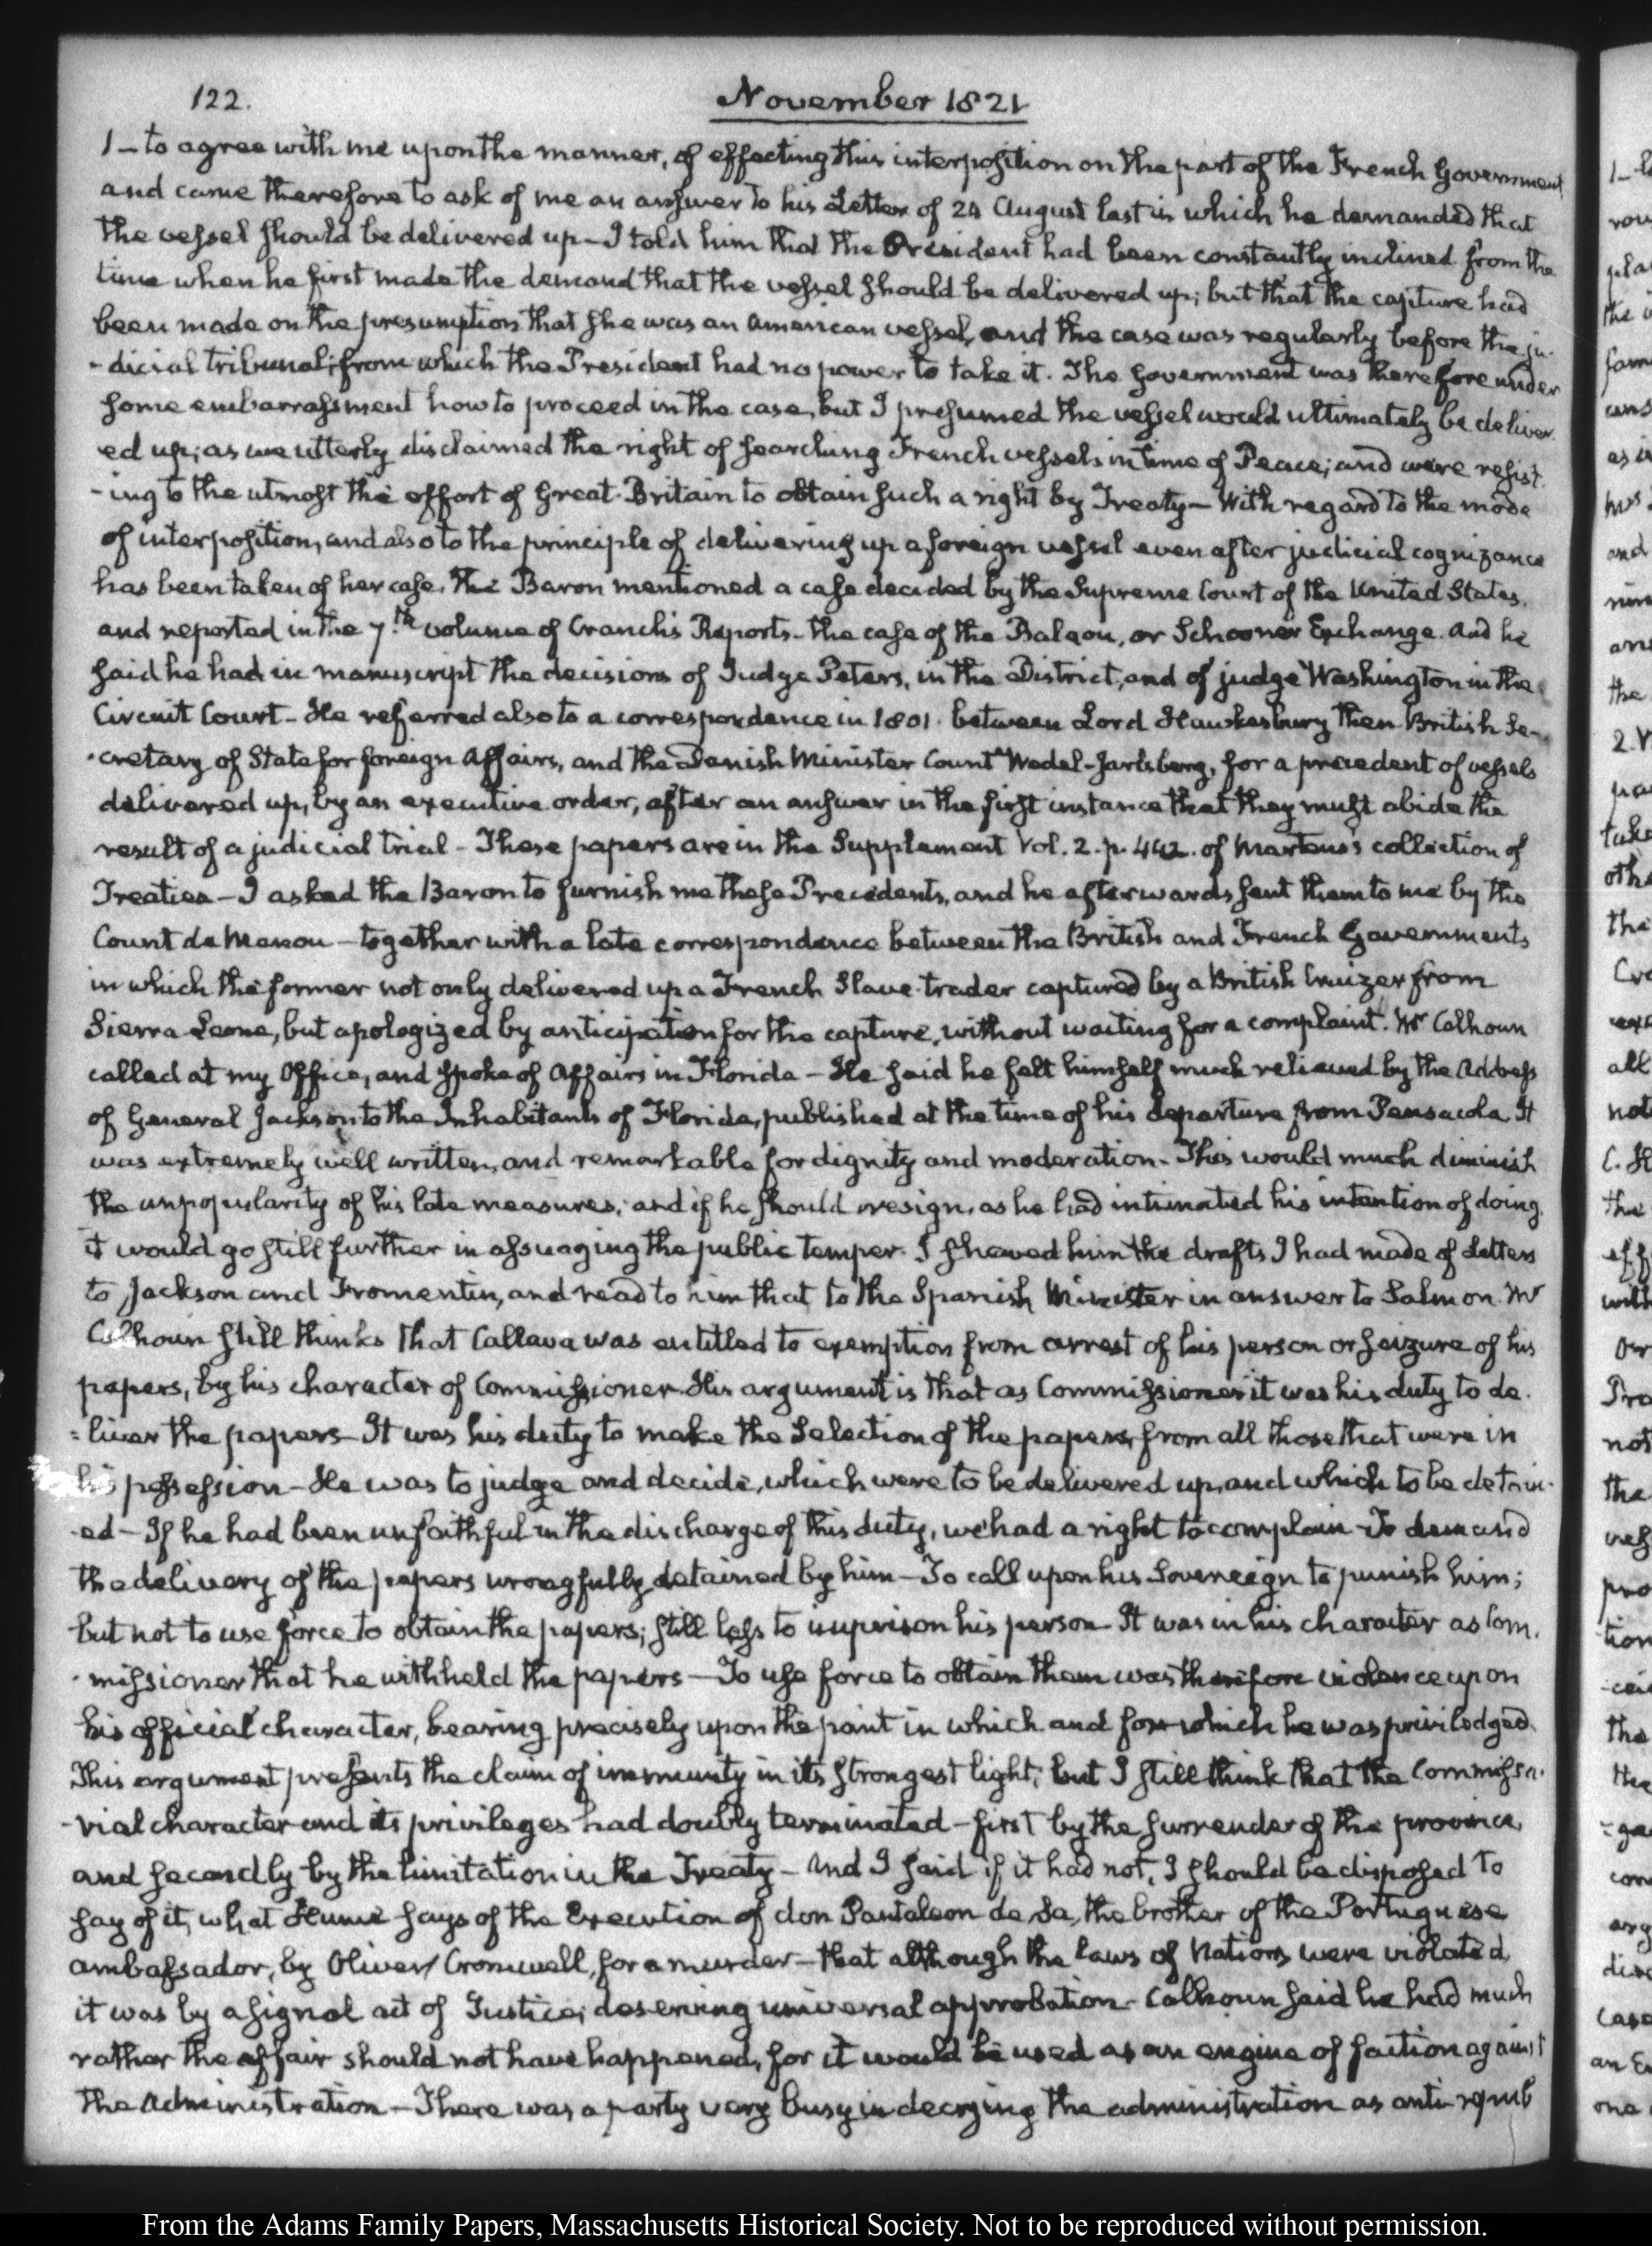 122.
November 1821
1 - to agree with me upon the manner, of effecting this interposition on the part of the French Government
and came therefore to ask of me an answer to his Letter of 24 August last in which he demanded that
the vessel should be delivered up - I told him that the President had been constantly inclined from the
time when he first made the demand that the vessel should be delivered up; but that the capture had
been made on the presumption that she was an American vessel, and the case was regularly before the ju-
-dicial tribunal; from which the President had no power to take it. The Government was therefore under
some embarrassment how to proceed in the case, but I presumed the vessel would ultimately be deliver-
ed up; as we utterly disclaimed the right of searching French vessels in time of Peace; and were resist-
-ing to the utmost the effort of Great-Britain to obtain such a right by Treaty - With regard to the mode
of interposition, and also to the principle of delivering up a foreign vessel even after judicial cognizance
has been taken of her case, the Baron mentioned a case decided by the Supreme Court of the United States,
and reported in the 7.th volume of Cranch's Reports - the case of the Balaou, or Schooner Exchange. And he
said he had in manuscript the decisions of Judge Peters, in the District, and of judge Washington in the
Circuit Court - He referred also to a correspondence in 1801. between Lord Hawkesbury then British Se-
-cretary of State for foreign Affairs, and the Danish Minister Count Wedel-Jarlsberg, for a precedent of vessels
delivered up, by an executive order, after an answer in the first instance that they must abide the
result of a judicial trial - These papers are in the Supplement Vol. 2. p. 442. of Martens's collection of
Treaties - I asked the Baron to furnish me these Precedents, and he afterwards sent them to me by the
Count de Menou - together with a late correspondence between the British and French Governments
in which the former not only delivered up a French Slave-trader captured by a British Cruizer from
Sierra Leone, but apologized by anticipation for the capture, without waiting for a complaint. Mr Calhoun
called at my Office, and spoke of Affairs in Florida - He said he felt himself much relieved by the Address
of General Jackson to the Inhabitants of Florida, published at the time of his departure from Pensacola. It
was extremely well written, and remarkable for dignity and moderation - This would much diminish
the unpopularity of his late measures; and if he should resign, as he had intimated his intention of doing
it would go still further in assuaging the public temper. I shewed him the drafts I had made of Letters
to Jackson and Fromentin, and read to him that to the Spanish Minister in answer to Salmon. Mr
Calhoun still thinks that Callava was entitled to exemption from arrest of his person or seizure of his
papers, by his character of Commissioner. His argument is that as Commissioner it was his duty to de-
=liver the papers - It was his duty to make the Selection of the papers, from all those that were in
his possession - He was to judge and decide, which were to be delivered up, and which to be detain-
-ed - If he had been unfaithful in the discharge of this duty, we had a right to complain - To demand
the delivery of the papers wrongfully detained by him - To call upon his Sovereign to punish him;
but not to use force to obtain the papers; still less to imprison his person - It was in his character as Com-
-missioner that he withheld the papers - To use force to obtain them was therefore violence upon
his official character, bearing precisely upon the point in which and for which he was priviledged.
This argument presents the claim of immunity in its strongest light; but I still think that the Commissa-
-rial character and its privileges had doubly terminated - first by the surrender of the province,
and secondly by the limitation in the Treaty - And I said if it had not, I should be disposed to
say of it, what Hume says of the Execution of don Pantaleon de Sa, the brother of the Portuguese
ambassador, by Oliver Cromwell, for a murder - that although the laws of Nations were violated,
it was by a signal act of Justice, deserving universal approbation - Calhoun said he had much
rather the affair should not have happened, for it would be used as an engine of faction against
the Administration - There was a party very busy in decrying the administration as anti-repub
From the Adams Family Papers, Massachusetts Historical Society. Not to be reproduced without permission.